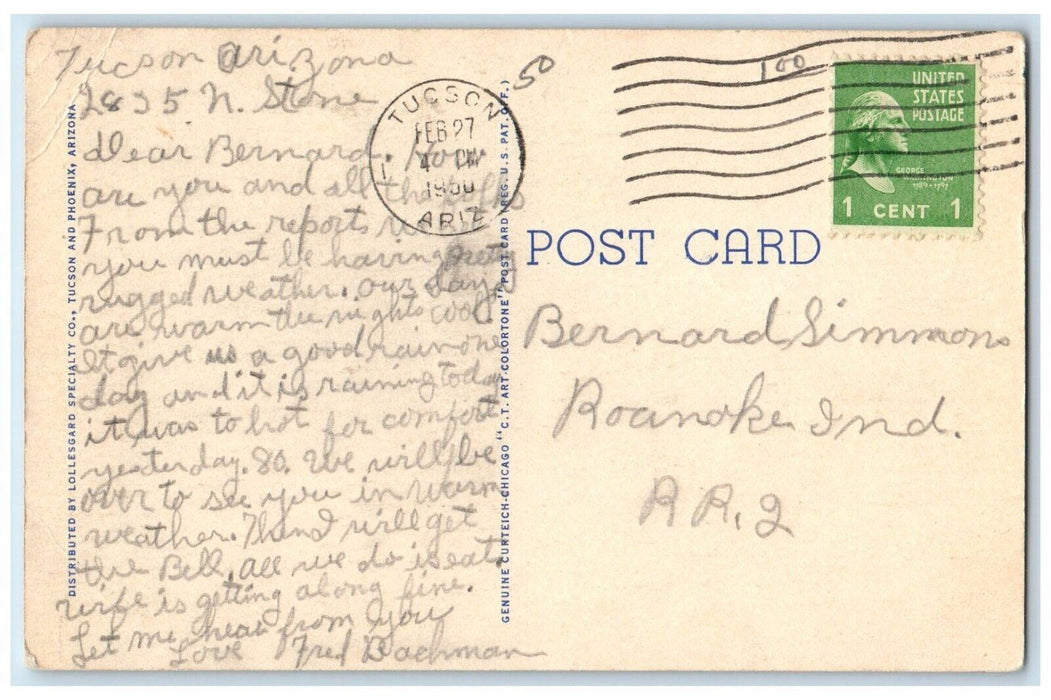 Tucson Arizona
2835 N. Stone
Dear Bernard. How
are you and all the folks
From the reports
you must be having Pretty
rugged weather. our days
are warm the nights cool.
It give us a good rain one
day and it is raining today
it was to hot for comfort
yesterday. 80. We will be
over to see you in warm
weather. Then I will get
the Bell, all we do is eat.
Wife is getting along fine.
Let me hear from you
Love Fred Bachman
DISTRIBUTED BY LOLLESGARD SPECIALTY CO., TUCSON AND PHOENIX, ARIZONA
TUCSON
FEB 27
4 PM
1950
ARIZ
50
100
GENUINE CURTEICH-CHICAGO "C.T. ART-COLORTONE" POST CARD (REG. U.S. PAT. OFF.)
UNITED
STATES
POSTAGE
GEORGE
WASHINGTON
1789-1797
1 CENT 1
POST CARD
Bernard Simmons
Roanoke Ind.
RR. 2